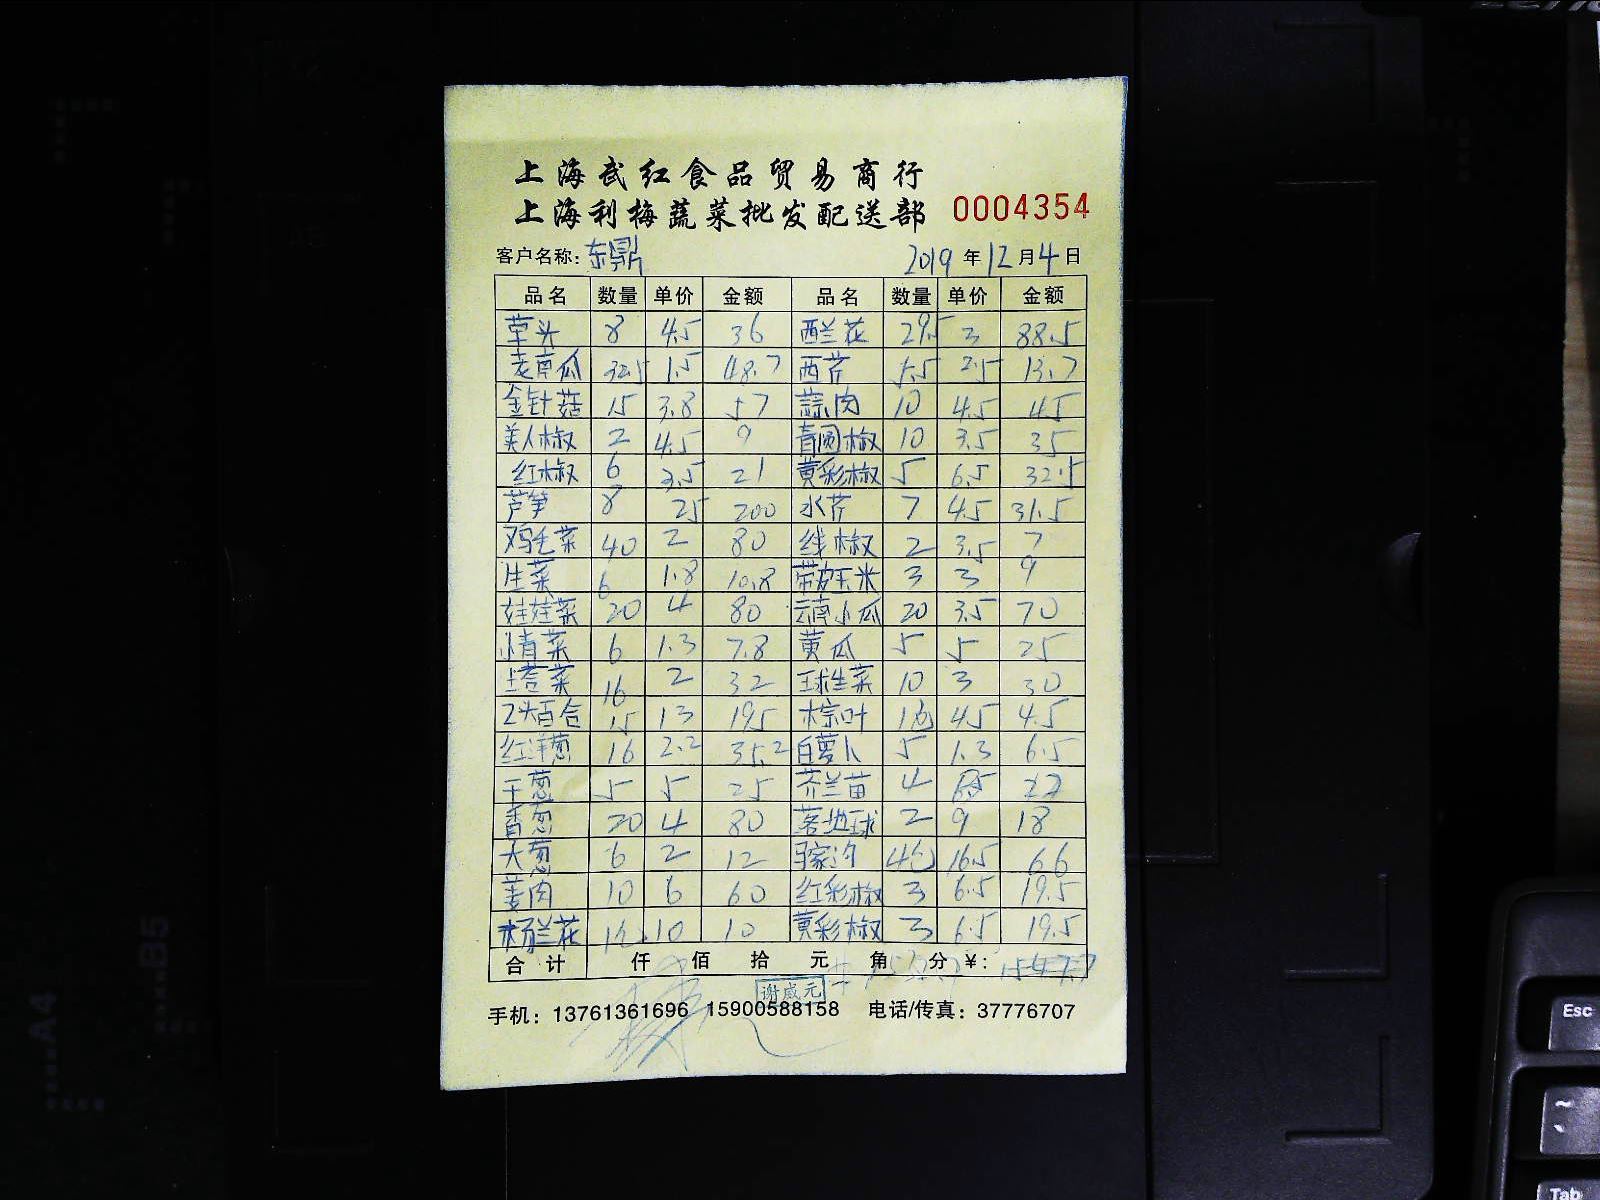 上海武红食品贸易商行
上海利梅蔬菜批发配送部 0004354
客户名称: 东鼎 2019 年 12 月 4 日
品名 数量 单价 金额 品名 数量 单价 金额
草头 8 4.5 36 西兰花 29.5 3 88.5
老南瓜 32.5 1.5 48.7 西芹 5.5 2.5 13.7
金针菇 15 3.8 57 蒜肉 10 4.5 45
美人椒 2 4.5 9 青圆椒 10 3.5 35
红椒 6 3.5 21 黄彩椒 5 6.5 32.5
芦笋 8 25 200 水芹 7 4.5 31.5
鸡毛菜 40 2 80 线椒 2 3.5 7
生菜 6 1.8 10.8 带皮玉米 3 3 9
娃娃菜 20 4 80 云南小瓜 20 3.5 70
小青菜 6 1.3 7.8 黄瓜 5 5 25
塔菜 16 2 32 球生菜 10 3 30
2头百合 15 13 195 棕叶 1包 4.5 4.5
红洋葱 16 2.2 35.2 白萝卜 5 1.3 6.5
干葱 5 5 25 芥兰苗 4 5.5 22
香葱 20 4 80 落地球 2 9 18
大葱 6 2 12 4包 16.5 66
姜肉 10 6 60 红彩椒 3 6.5 19.5
杨兰花 10 10 黄彩椒 3 6.5 19.5
合计 仟 佰 拾 元 角 分 ¥: 1547.7
谢咸元
手机: 13761361696 15900588158 电话/传真: 37776707
Esc
~
Tab